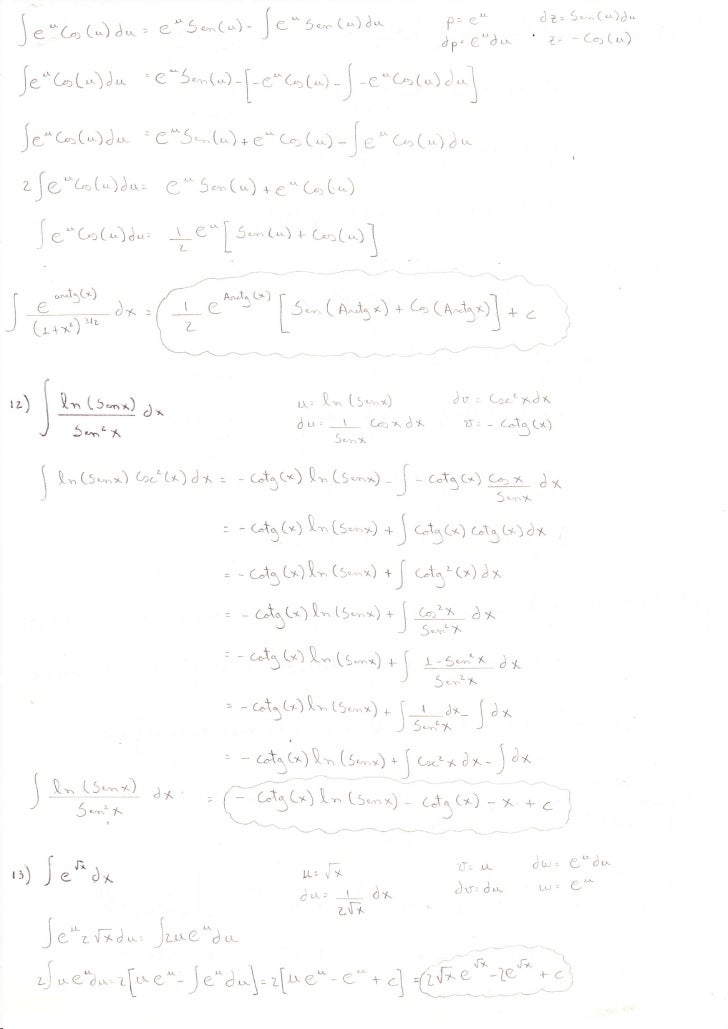 ∫e^u Cos(u)du = e^u Sen(u) - ∫e^u Sen(u)du   p= e^u   dz= Sen(u)du
dp= e^u du   z= -Cos(u)
∫e^u Cos(u)du = e^u Sen(u) - [-e^u Cos(u) - ∫-e^u Cos(u)du]
∫e^u Cos(u)du = e^u Sen(u) + e^u Cos(u) - ∫e^u Cos(u)du
2∫e^u Cos(u)du = e^u Sen(u) + e^u Cos(u)
∫e^u Cos(u)du = 1/2 e^u [Sen(u) + Cos(u)]
∫ e^arctg(x)/(1+x²)^3/2 dx = 1/2 e^Arctg(x) [Sen(Arctg x) + Cos(Arctg x)] + c
12) ∫ ln(Senx)/Sen²x dx   u= ln(Senx)   dv= Csc²xdx
du= 1/Senx Cosxdx   v= -Cotg(x)
∫ ln(Senx) Csc²(x)dx = -Cotg(x) ln(Senx) - ∫-Cotg(x) Cosx/Senx dx
= -Cotg(x) ln(Senx) + ∫Cotg(x) Cotg(x)dx
= -Cotg(x) ln(Senx) + ∫Cotg²(x)dx
= -Cotg(x) ln(Senx) + ∫ Cos²x/Sen²x dx
= -Cotg(x) ln(Senx) + ∫ 1-Sen²x/Sen²x dx
= -Cotg(x) ln(Senx) + ∫ 1/Sen²x dx - ∫dx
= -Cotg(x) ln(Senx) + ∫Csc²xdx - ∫dx
∫ ln(Senx)/Sen²x dx = -Cotg(x) ln(Senx) - Cotg(x) - x + c
13) ∫e^√x dx   u= √x   v= u   dw= e^u du
du= 1/2√x dx   dv= du   w= e^u
∫e^u 2√x du = ∫2ue^u du
2∫ue^u du = 2[ue^u - ∫e^u du] = 2[ue^u - e^u + c] = 2√x e^√x - 2e^√x + c